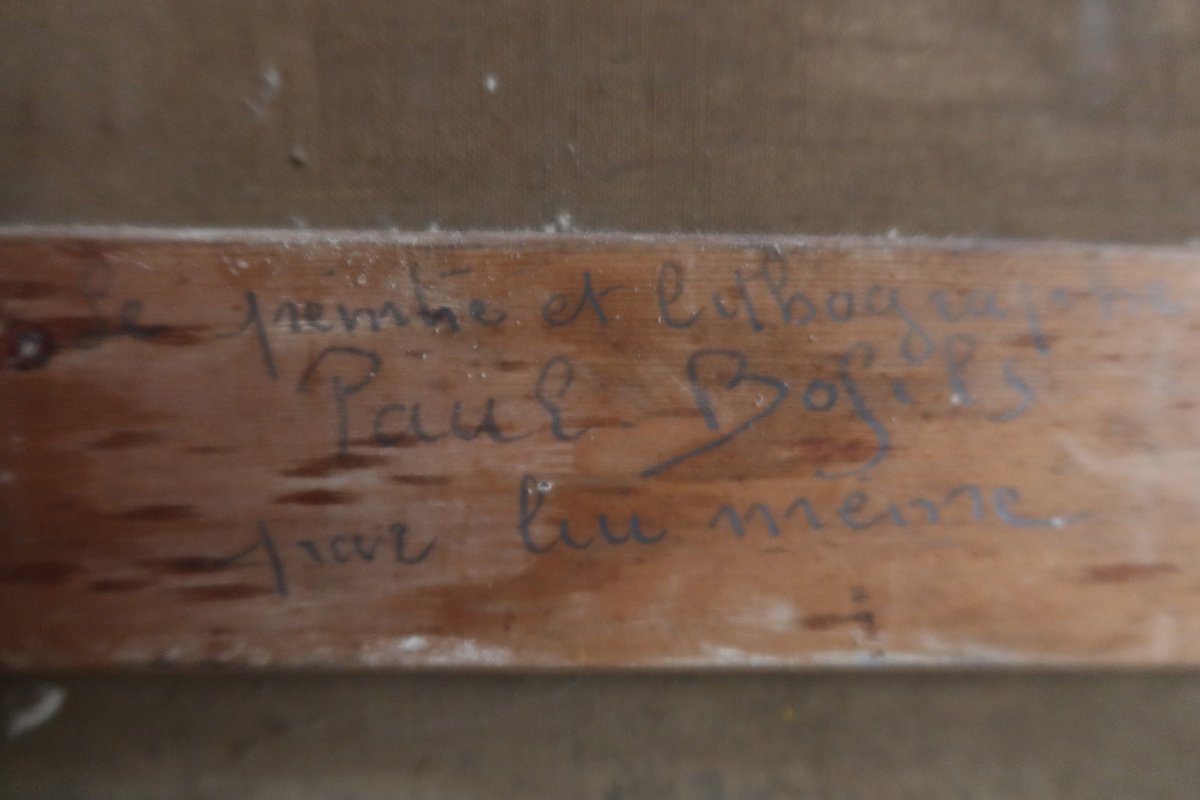 Le peintre et lythographe
Paul. Bofils
par lui même